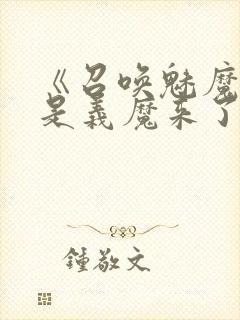 《召唤魅魔
是义魔来了
鍾敬文